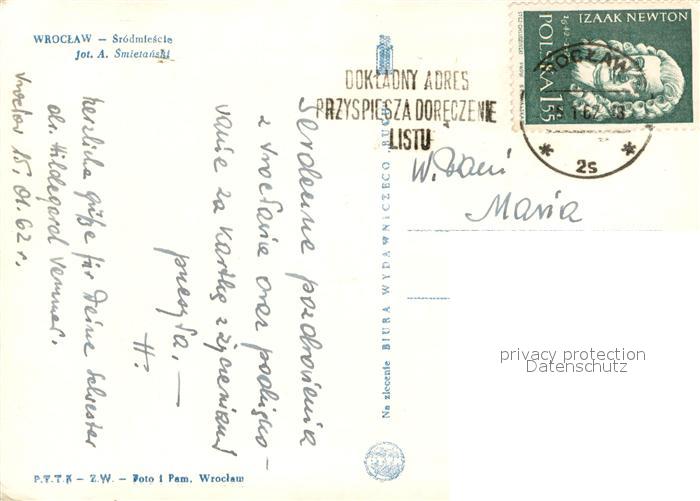 WROCŁAW – Śródmieście
fot. A. Śmietański
DOKŁADNY ADRES
PRZYSPIESZA DORĘCZENIE
LISTU
IZAAK NEWTON
POLSKA 1.55
1642-
WROCŁAW
2s
W. Pani
Maria
Serdeczne pozdrowienia
z Wrocławia oraz podzięko-
wanie za kartkę z życzeniami
przesyła. —
H.
herzliche Grüße für Deine Schwester
Dr. Hildegard
Wrocław 15. 01. 62 r.
Na zlecenie BIURA WYDAWNICZEGO „RUCH"
P.T.T.K – Z.W. – Foto i Pam. Wrocław
privacy protection
Datenschutz